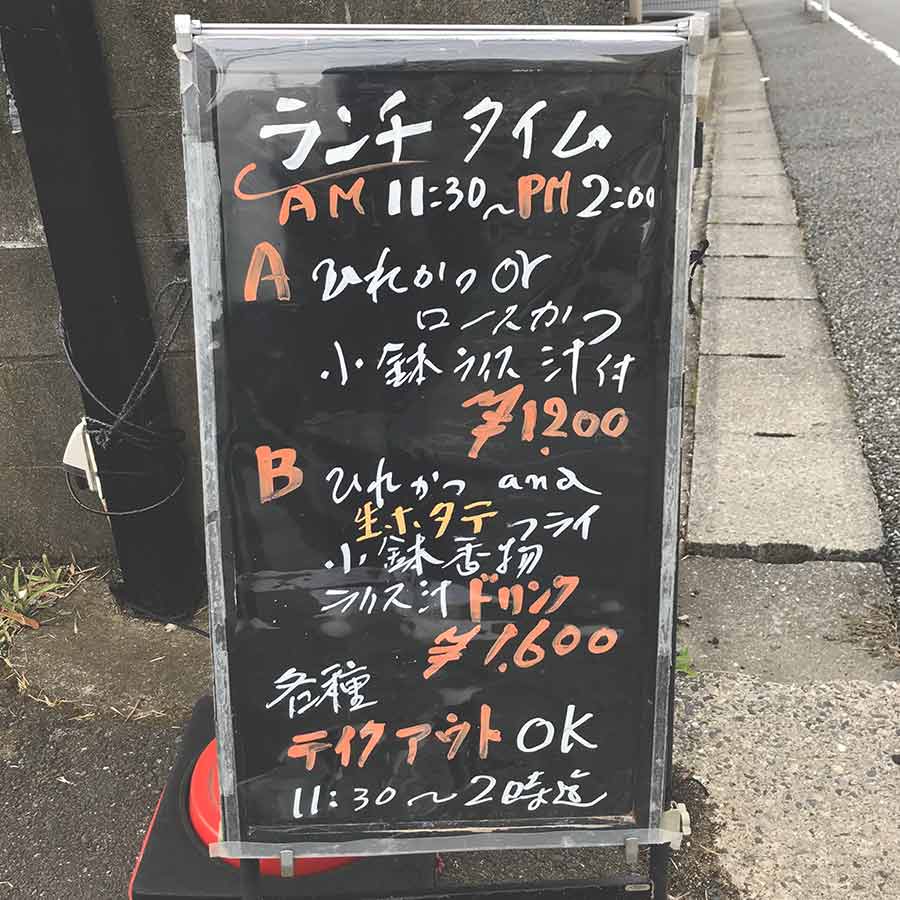 ランチタイム
AM 11:30~PM 2:00
A ひれかつ or
ロースかつ
小鉢 ライス 汁付
¥1200
B ひれかつ and
生ホタテフライ
小鉢香物
ライス汁ドリンク
¥1,600
各種
テイクアウトOK
11:30~2時迄